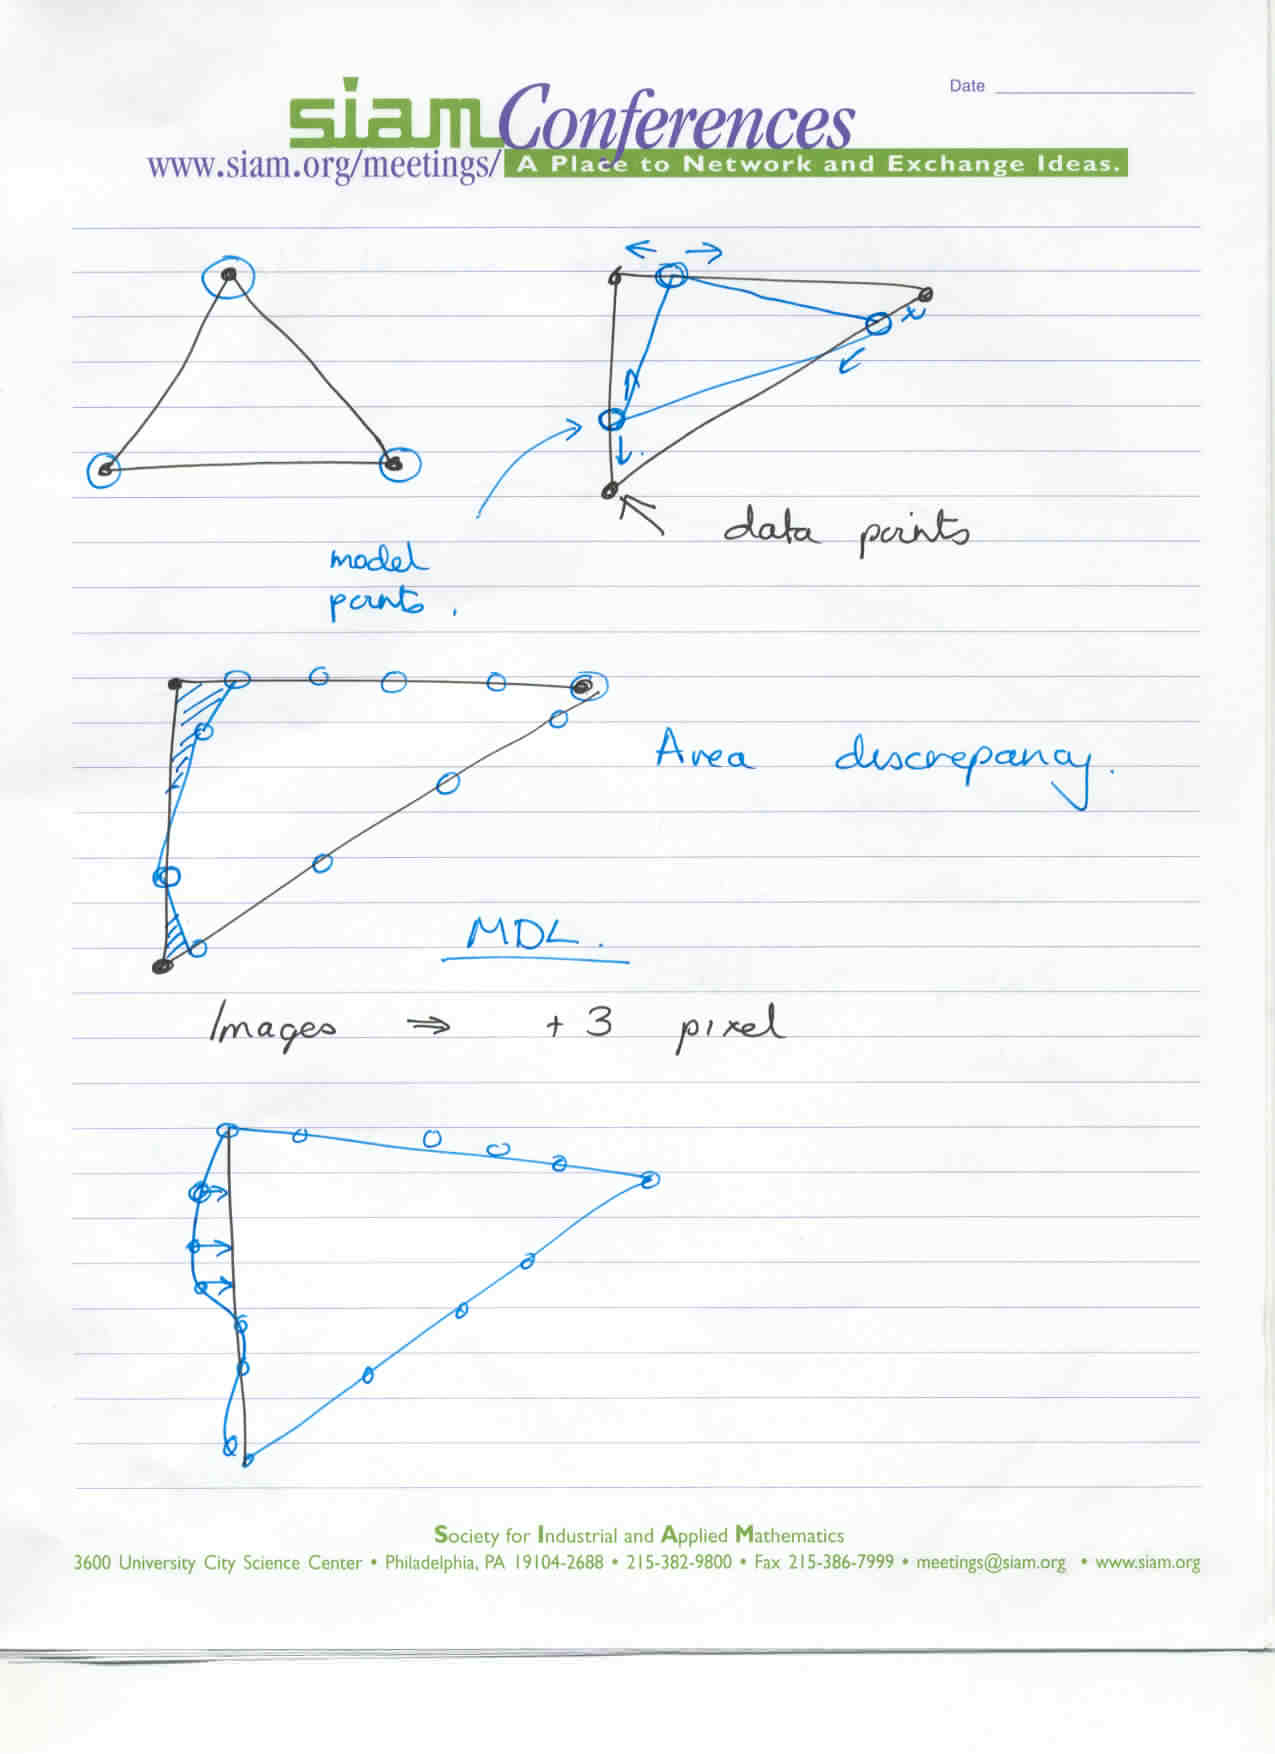 Date
siam Conferences
www.siam.org/meetings/ A Place to Network and Exchange Ideas.
x
data points
model
points.
Area discrepancy.
MDL.
Images ⇒ + 3 pixel
Society for Industrial and Applied Mathematics
3600 University City Science Center • Philadelphia, PA 19104-2688 • 215-382-9800 • Fax 215-386-7999 • meetings@siam.org • www.siam.org